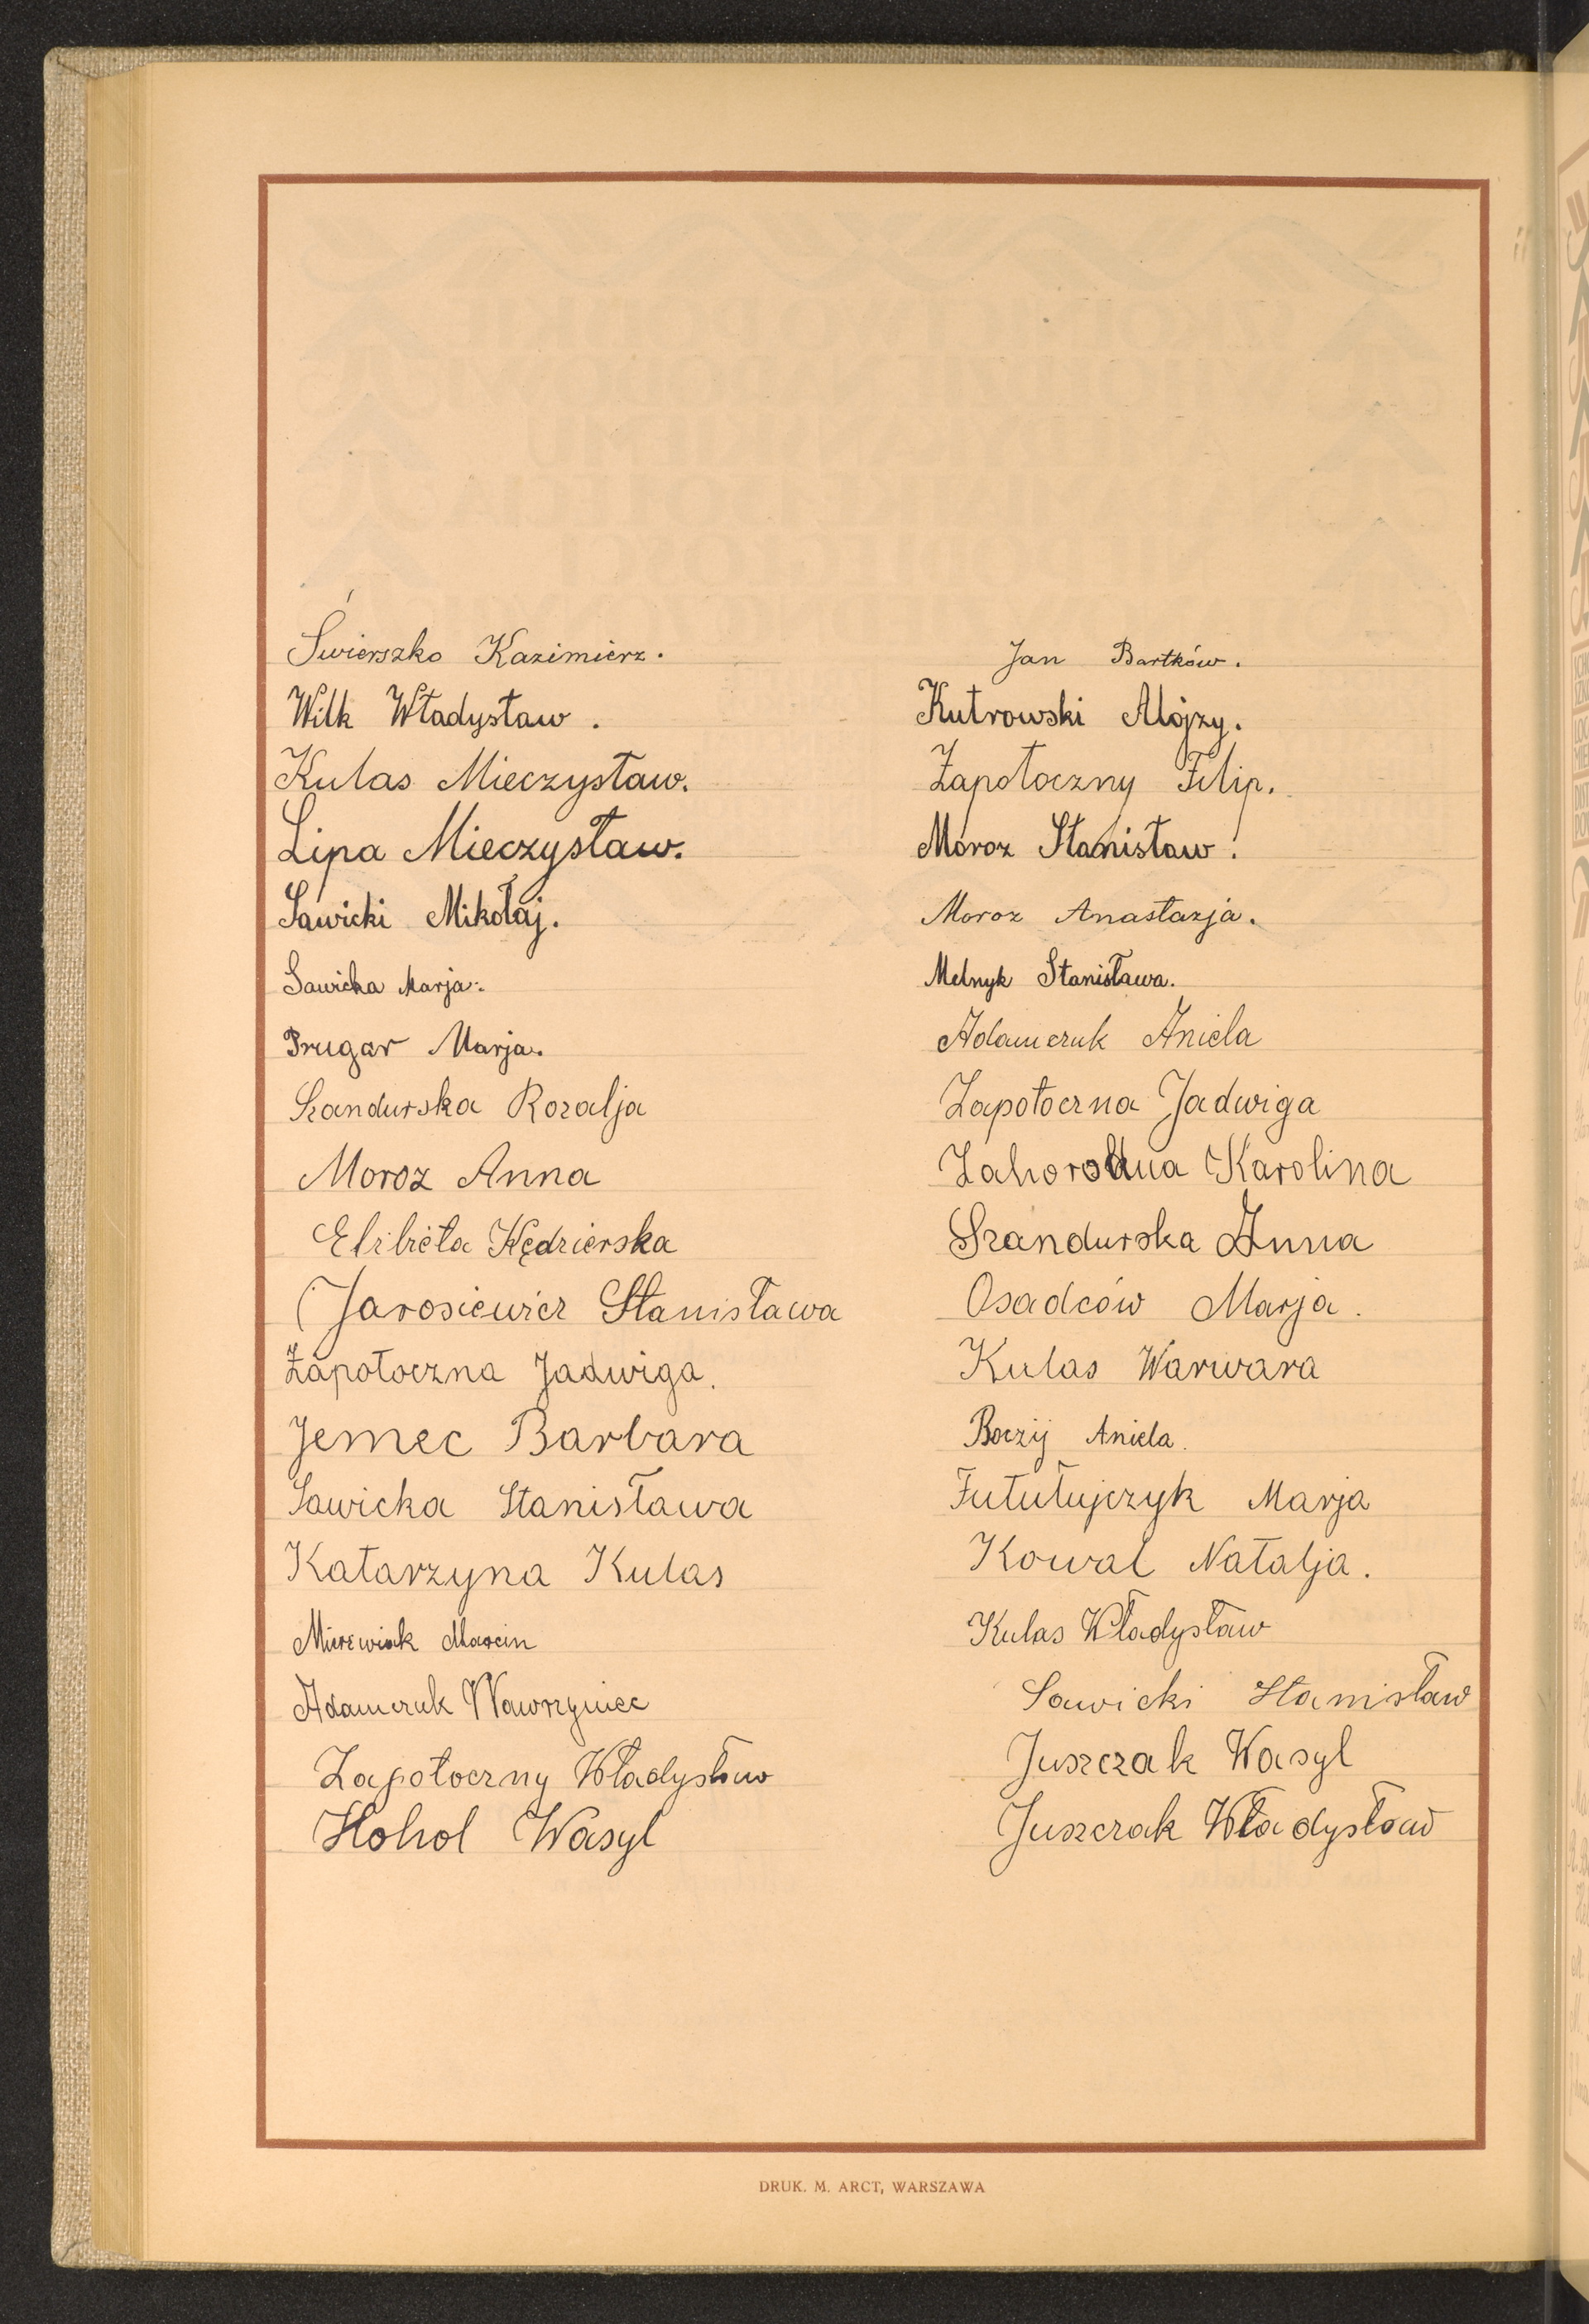 Świerszko Kazimierz.
Wilk Władysław.
Kulas Mieczysław.
Lipa Mieczysław.
Sawicki Mikołaj.
Sawicka Marja.
Prugar Marja.
Szandurska Rozalja
Moroz Anna
Elżbieta Kędzierska
Jarosiewicz Stanisława
Zapotoczna Jadwiga.
Jemec Barbara
Sawicka Stanisława
Katarzyna Kulas
Marcin
Adamczuk Wawrzyniec
Zapotoczny Władysław
Hohol Wasyl
Jan Bartków.
Kutrowski Alojzy.
Zapotoczny Filip.
Moroz Stanisław.
Moroz Anastazja.
Melnyk Stanisława.
Adamczuk Aniela
Zapotoczna Jadwiga
Zahorodna Karolina
Szandurska Anna
Osadców Marja.
Kulas Warwara
Boczij Aniela.
Futułujczyk Marja
Kowal Natalja.
Kulas Władysław
Sawicki Stanisław
Juszczak Wasyl
Juszczak Władysław
DRUK. M. ARCT, WARSZAWA